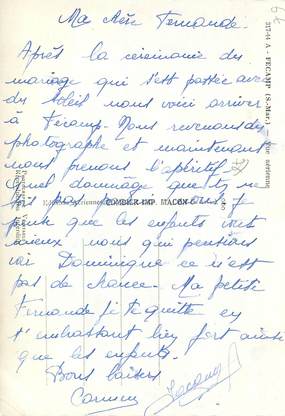 Ma chère Fernande.
Après la cérémonie du
mariage qui s'est passée avec
du soleil nous voici arriver
à Fécamp. Nous revenons du
photographe et maintenant
nous prenons l'apéritif
Quel dommage que tu ne
sois pas
pense que les enfants vont
mieux nous qui pensions
voir Dominique ce n'est
pas de chance. Ma petite
Fernande je te quitte en
t'embrassant bien fort ainsi
que les enfants.
Bons baisers
Carmen
317-14 A - FECAMP (S.-Mar.) - Vue aérienne
COMBIER IMP. MACON